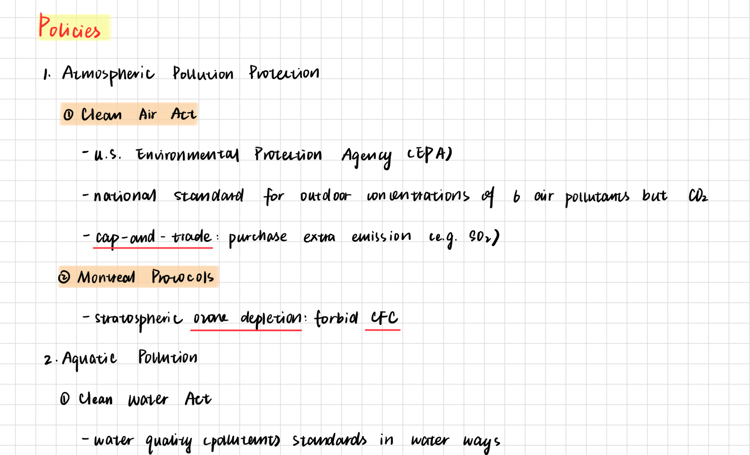 Policies
1. Atmospheric Pollution Protection
① Clean Air Act
- U.S. Environmental Protection Agency (EPA)
- national standard for outdoor concentrations of 6 air pollutants but CO₂
- cap-and-trade: purchase extra emission (e.g. SO₂)
② Montreal Protocols
- stratospheric ozone depletion: forbid CFC
2. Aquatic Pollution
① Clean Water Act
- water quality (pollutants standards in water ways